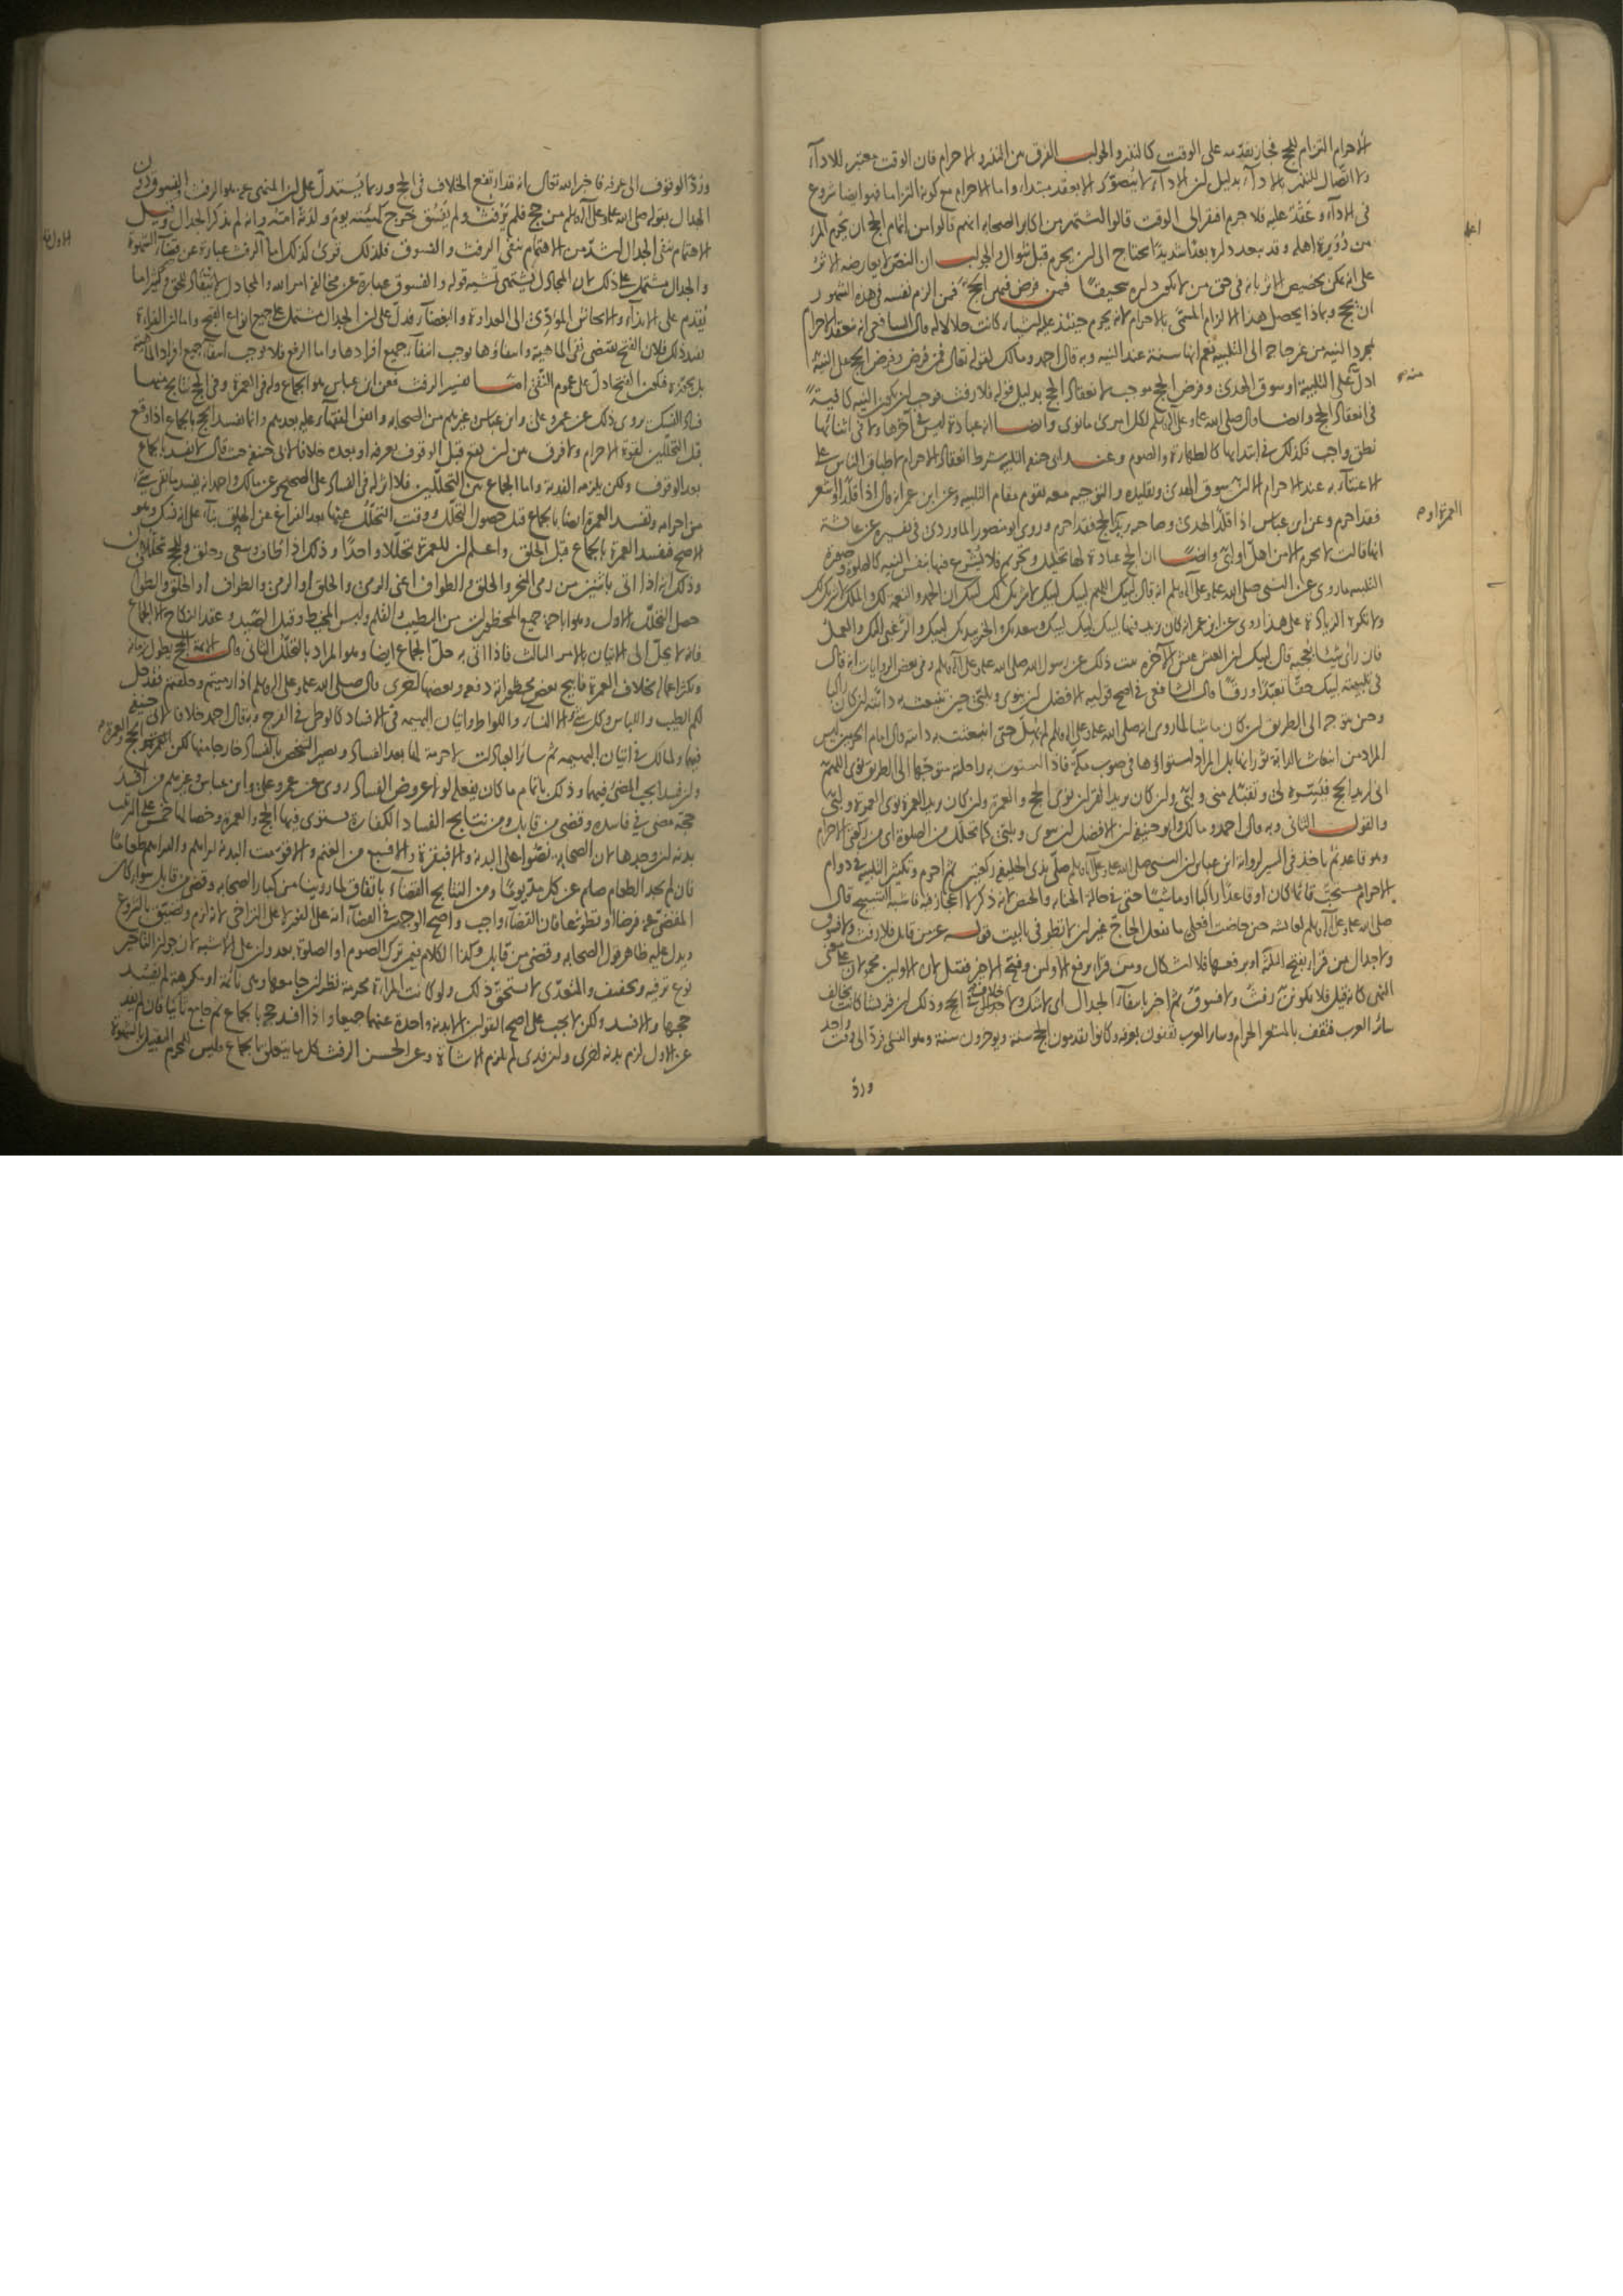 الاحرام التزام للحج فجاز تقديمه على الوقت كالنذر والجواب الفرق بين النذر والاحرام فان الوقت معتبر للاداء
ولا اتصال للنذر بالاداء بدليل ان الاداء لا يتصور الا بعقد مبتداء واما الاحرام مع كونه التزاما فهو ايضا شروع
فى الاداء وعقد عليه فلا جرم افتقر الى الوقت قالوا اشتهر من اكابر الصحابة انهم قالوا من اتمام الحج ان يحرم المرء
من دويرة اهله وقد يبعد داره بعدا شديدا يحتاج الى ان يحرم قبل شوال والجواب ان النص لا يعارضه الاثر
على انه يمكن تخصيص الاثر بانه فى حق من لا يكون داره سحيقا فمن فرض فيهن الحج فمن الزم نفسه فى هذه الشهور
ان يحج وبماذا يحصل هذا الالزام المسمى بالاحرام لانه يحرم حينئذ عليه اشياء كانت حلالا له قال الشافعى انه ينعقد الاحرام
بمجرد النية من غير حاجة الى التلبية نعم انها سنة عند النية وبه قال احمد ومالك لقوله تعالى فمن فرض وفرض الحج على النية
ادل على التلبية او سوق الهدى وفرض الحج موجب لانعقاد الحج بدليل قوله فلا رفث فوجب ان يكون النية كافية
فى انعقاد الحج وايضا قال صلى الله عليه وعلى آله وسلم لكل امرئ ما نوى وايضا انه عبادة ليس فى آخرها ولا فى اثنائها
نطق واجب فكذلك فى ابتدائها كالطهارة والصوم وعند ابى حنيفة التلبية شرط انعقاد الاحرام لاطباق الناس على
الاعتناء به عند الاحرام الا ان سوق الهدى وتقليده والتوجيه معه يقوم مقام التلبية وعن ابن عمر انه قال اذا قلد او اشعر
فقد احرم وعن ابن عباس اذا قلد الهدى وصاحبه يريد الحج فقد احرم وروى ابو منصور الماوردى فى تفسيره عن عائشة
انها قالت لا يحرم الا من اهل او لبى وايضا ان الحج عبادة لها تحليل وتحريم فلا يشرع فيها بنفس النية كالصلوة وصورة
التلبية ما روى عن النبى صلى الله عليه وعلى آله وسلم انه قال لبيك اللهم لبيك لبيك لا شريك لك لبيك ان الحمد والنعمة لك والملك لا شريك لك
ولا نكره الزيادة على هذا روى عن ابن عمر انه كان يزيد فيها لبيك لبيك لبيك وسعديك والخير بيديك لبيك والرغبى اليك والعمل
فان رأى شيئا يعجبه قال لبيك ان العيش عيش الآخرة ثبت ذلك عن رسول الله صلى الله عليه وعلى آله وسلم وفى بعض الروايات انه قال
فى تلبيته لبيك حقا تعبدا ورقا قال الشافعى فى اصح قوليه الافضل ان ينوى ويلبى حين تنبعث به دابته ان كان راكبا
وحين يتوجه الى الطريق ان كان ماشيا لما روى انه صلى الله عليه وعلى آله وسلم لم يهل حتى انبعثت به دابته قال امام الحرمين ليس
المراد من انبعاث الدابة ثورانها بل المراد استواؤها فى صوب مكة فاذا استوت به راحلته متوجها الى الطريق نوى اللهم
انى اريد الحج فيسره لى وتقبله منى ولبى وان كان يريد القران نوى الحج والعمرة وان كان يريد العمرة نوى العمرة ولبى
والقول الثانى وبه قال احمد ومالك وابو حنيفة ان الافضل ان ينوى ويلبى كما تحلل من الصلوة اى من ركعتى الاحرام
وهو قاعد ثم ياخذ فى السير لرواية ابن عباس ان النبى صلى الله عليه وعلى آله وسلم صلى بذى الحليفة ركعتين ثم احرم وتكثير التلبية فى دوام
الاحرام مستحب قائما كان او قاعدا راكبا او ماشيا حتى فى حالة الجنابة والحيض لانه ذكر لا اعجاز فيه فاشبه التسبيح قال
صلى الله عليه وعلى آله وسلم لعائشة حين حاضت افعلى ما يفعل الحاج غير ان لا تطوفى بالبيت قوله عز من قائل فلا رفث ولا فسوق
ولا جدال من قرأ بفتح الثلثة او برفعها فلا اشكال ومن قرأ برفع الاولين وفتح الاخير فقيل لان الاولين محمولان على معنى
النهى كانه قيل فلا يكونن رفث ولا فسوق ثم اخبر بانتفاء الجدال اى لا شك ولا خلاف فى الحج وذلك ان قريشا كانت تخالف
سائر العرب فتقف بالمشعر الحرام وسائر العرب يقفون بعرفة وكانوا يقدمون الحج سنة ويؤخرون سنة وهو النسئ فرد الى وقت واحد
ورد
العمرة او
ورد الوقوف الى عرفة فاخبر الله تعالى انه قد ارتفع الخلاف فى الحج وربما يستدل على ان المنهى عنه هو الرفث والفسوق دون
الجدال بقوله صلى الله عليه وعلى آله وسلم من حج فلم يرفث ولم يفسق خرج كهيئته يوم ولدته امه وانه لم يذكر الجدال وقيل
الاهتمام بنفى الجدال اشد من الاهتمام بنفى الرفث والفسوق فلذلك قرئ كذلك اما الرفث عبارة عن قضاء الشهوة
والجدال مشتمل على ذلك لان المجادل يشتهى تمشية قوله والفسوق عبارة عن مخالفة امر الله والمجادل لا ينقاد للحق وكثيرا ما
يقدم على الايذاء والايحاش المؤدى الى العداوة والبغضاء فدل على ان الجدال مشتمل على جميع انواع القبح واما ان القراءة
تفيد ذلك فلان الفتح يقتضى نفى الماهية وانتفاؤها يوجب انتفاء جميع افرادها واما الرفع فلا يوجب انتفاء جميع افراد الماهية
بل يجوزه فيكون الفتح ادل على عموم النفى اما تفسير الرفث فعن ابن عباس هو الجماع وله فى العمرة وفى الحج نتايج منها
فساد النسك روى ذلك عن عمر وعلى وابن عباس وغيرهم من الصحابة واتفق الفقهاء عليه بعدهم وانما يفسد الحج بالجماع اذا وقع
قبل التحللين لقوة الاحرام ولا فرق بين ان يقع قبل الوقوف بعرفة او بعده خلافا لابى حنيفة حيث قال لا يفسد بالجماع
بعد الوقوف ولكن يلزمه الفدية واما الجماع بين التحللين فلا اثر له فى الفساد على الصحيح وعن مالك واحمد انه يفسد ما بقى شىء
من احرامه وتفسد العمرة ايضا بالجماع قبل حصول التحلل ووقت التحلل عنها بعد الفراغ عن الحلق بناء على انه نسك وهو
الاصح فيفسد العمرة بالجماع قبل الحلق واعلم ان للعمرة تحللا واحدا وذلك اذا طاف وسعى وحلق وللحج تحللان
وذلك انه اذا اتى باثنين من رمى النحر والحلق والطواف اعنى الرمى والحلق او الرمى والطواف او الحلق والطواف
حصل التحلل الاول وهو اباحة جميع المحظورات من الطيب والقلم ولبس المخيط وقتل الصيد وعقد النكاح الا الجماع
فانه لا يحل الا الى الاتيان بالامر الثالث فاذا اتى به حل الجماع ايضا وهو المراد بالتحلل الثانى قال الائمة الحج يطول زمانه
وتكثر اعماله بخلاف العمرة فابيح بعض محظوراته دفعة وبعضها اخرى قال صلى الله عليه وعلى آله وسلم اذا رميتم وحلقتم فقد حل
لكم الطيب واللباس وكل شىء الا النساء واللواط واتيان البهيمة فى الافساد كالوطى فى الفرج وبه قال احمد خلافا لابى حنيفة
فيها ولمالك فى اتيان البهيمة ثم سائر العبادات لا حرمة لها بعد الفساد ويصير الشخص بالفساد خارجا منها لكن الحج والعمرة
وان فسدا يجب المضى فيهما وذلك باتمام ما كان يفعله لولا عروض الفساد روى عن عمر وعلى وابن عباس وغيرهم من افسد
حجه مضى فى فاسده وقضى من قابل ومن نتايج الفساد الكفارة يستوى فيها الحج والعمرة وخصالها خمس على الترتيب
بدنة ان وجدها لان الصحابة نصوا على البدنة والا فبقرة والا فسبع من الغنم والا قومت البدنة دراهم والدراهم طعاما
فان لم يجد الطعام صام عن كل مد يوما ومن النتايج القضاء باتفاق لما روينا من كبار الصحابة وقضى من قابل سواء كان
المقضى عنه فرضا او تطوعا فان القضاء واجب واصح الوجهين فى القضاء انه على الفور لا على التراخى لانه لزم وتضيق بالشروع
ويدل عليه ظاهر قول الصحابة وقضى من قابل وكذا الكلام فيمن ترك الصوم او الصلوة بعدوان على الاشبه لان جواز التاخير
نوع ترفيه وتخفيف والمتعدى لا يستحق ذلك ولو كانت المراة محرمة نظر ان جامعها وهى نائمة او مكرهة لم يفسد
حجها والا فسد ولكن لا يجب على اصح القولين الا بدنة واحدة عنهما جميعا واذا افسد حجه بالجماع ثم جامع ثانيا فان لم يفد
عن الاول لزم بدنة اخرى وان فدى لم يلزم الا شاة وعن الحسن الرفث كل ما يتعلق بالجماع فليس للمحرم التقبيل بالشهوة